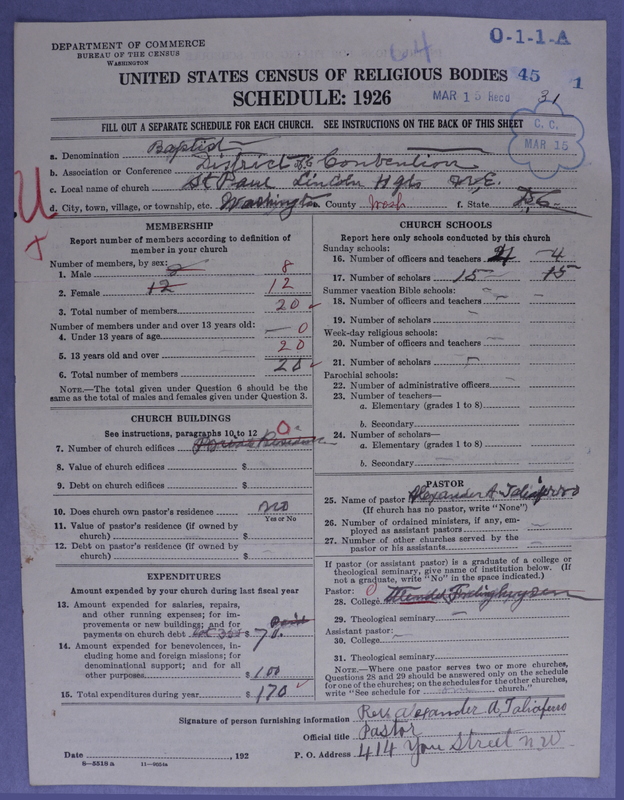 DEPARTMENT OF COMMERCE
BUREAU OF THE CENSUS
WASHINGTON
64
O-1-1-A
UNITED STATES CENSUS OF RELIGIOUS BODIES 45 1
SCHEDULE: 1926
MAR 15 Recd 31
FILL OUT A SEPARATE SCHEDULE FOR EACH CHURCH. SEE INSTRUCTIONS ON THE BACK OF THIS SHEET
C. C.
MAR 15
a. Denomination Baptist
b. Association or Conference District of C Convention
c. Local name of church St Paul Lincoln Hgts N.E.
d. City, town, village, or township, etc. Washington County Wash f. State D.C.
MEMBERSHIP
Report number of members according to definition of
member in your church
Number of members, by sex:
1. Male 8 8
2. Female 12 12
3. Total number of members 20
Number of members under and over 13 years old:
4. Under 13 years of age 0
5. 13 years old and over 20
6. Total number of members 20
NOTE.—The total given under Question 6 should be the
same as the total of males and females given under Question 3.
CHURCH BUILDINGS
See instructions, paragraphs 10 to 12 0
7. Number of church edifices Private Residence
8. Value of church edifices $
9. Debt on church edifices $
10. Does church own pastor's residence? No
Yes or No
11. Value of pastor's residence (if owned by
church) $
12. Debt on pastor's residence (if owned by
church) $
EXPENDITURES
Amount expended by your church during last fiscal year
13. Amount expended for salaries, repairs,
and other running expenses; for im-
provements or new buildings; and for
payments on church debt $ 70. Paid
14. Amount expended for benevolences, in-
cluding home and foreign missions; for
denominational support; and for all
other purposes $ 100
15. Total expenditures during year $ 170
CHURCH SCHOOLS
Report here only schools conducted by this church
Sunday schools:
16. Number of officers and teachers 4 4
17. Number of scholars 15 15
Summer vacation Bible schools:
18. Number of officers and teachers
19. Number of scholars
Week-day religious schools:
20. Number of officers and teachers
21. Number of scholars
Parochial schools:
22. Number of administrative officers
23. Number of teachers—
a. Elementary (grades 1 to 8)
b. Secondary
24. Number of scholars—
a. Elementary (grades 1 to 8)
b. Secondary
PASTOR
25. Name of pastor Alexander A. Taliaferro
(If church has no pastor, write "None")
26. Number of ordained ministers, if any, em-
ployed as assistant pastors
27. Number of other churches served by the
pastor or his assistants
If pastor (or assistant pastor) is a graduate of a college or
theological seminary, give name of institution below. (If
not a graduate, write "No" in the space indicated.)
Pastor: 0
28. College Frelinghuysen
29. Theological seminary
Assistant pastor:
30. College
31. Theological seminary
NOTE.—Where one pastor serves two or more churches,
Questions 28 and 29 should be answered only on the schedule
for one of the churches; on the schedules for the other churches,
write "See schedule for church."
Signature of person furnishing information Rev Alexander A. Taliaferro
Official title Pastor
Date , 192 P. O. Address 414 You Street N.W.
8—5518 a 11—9054a